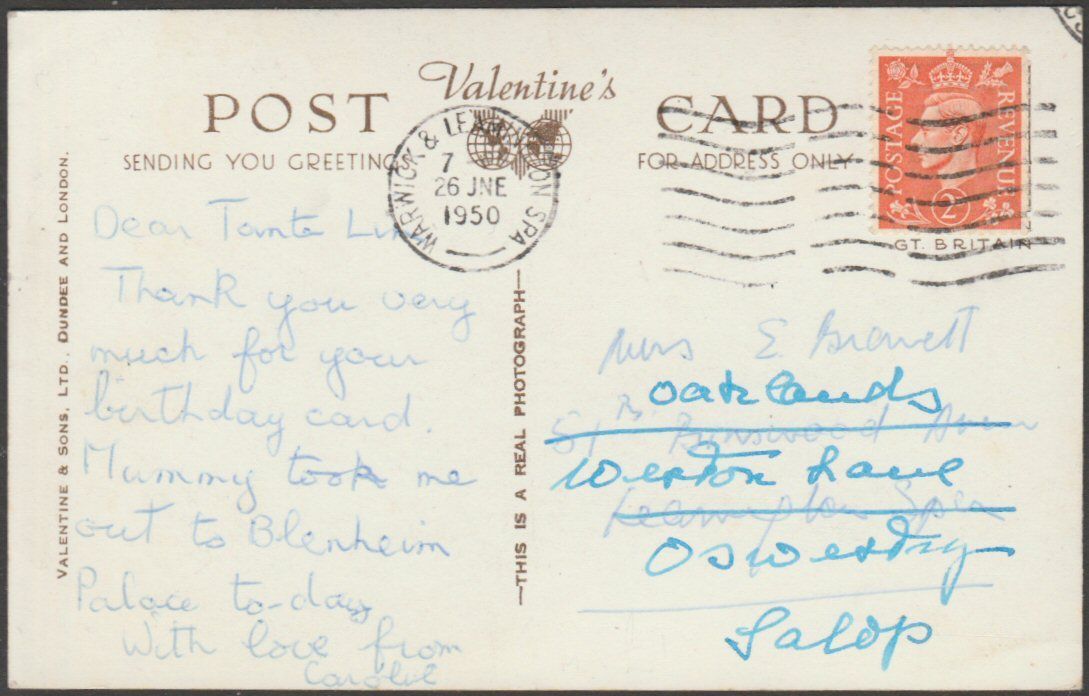 Valentine's
POST CARD
SENDING YOU GREETINGS FOR ADDRESS ONLY
WARWICK & LEAMINGTON SPA
7
26 JNE
1950
POSTAGE REVENUE
2D
GT. BRITAIN
VALENTINE & SONS, LTD. DUNDEE AND LONDON.
Dear Tante
Thank you very
much for your
birthday card.
Mummy took me
out to Blenheim
Palace to-day
With love from
—THIS IS A REAL PHOTOGRAPH—
Mrs E
Oaklands
51 Binswood
Weston Lane
Leamington Spa
Oswestry
Salop